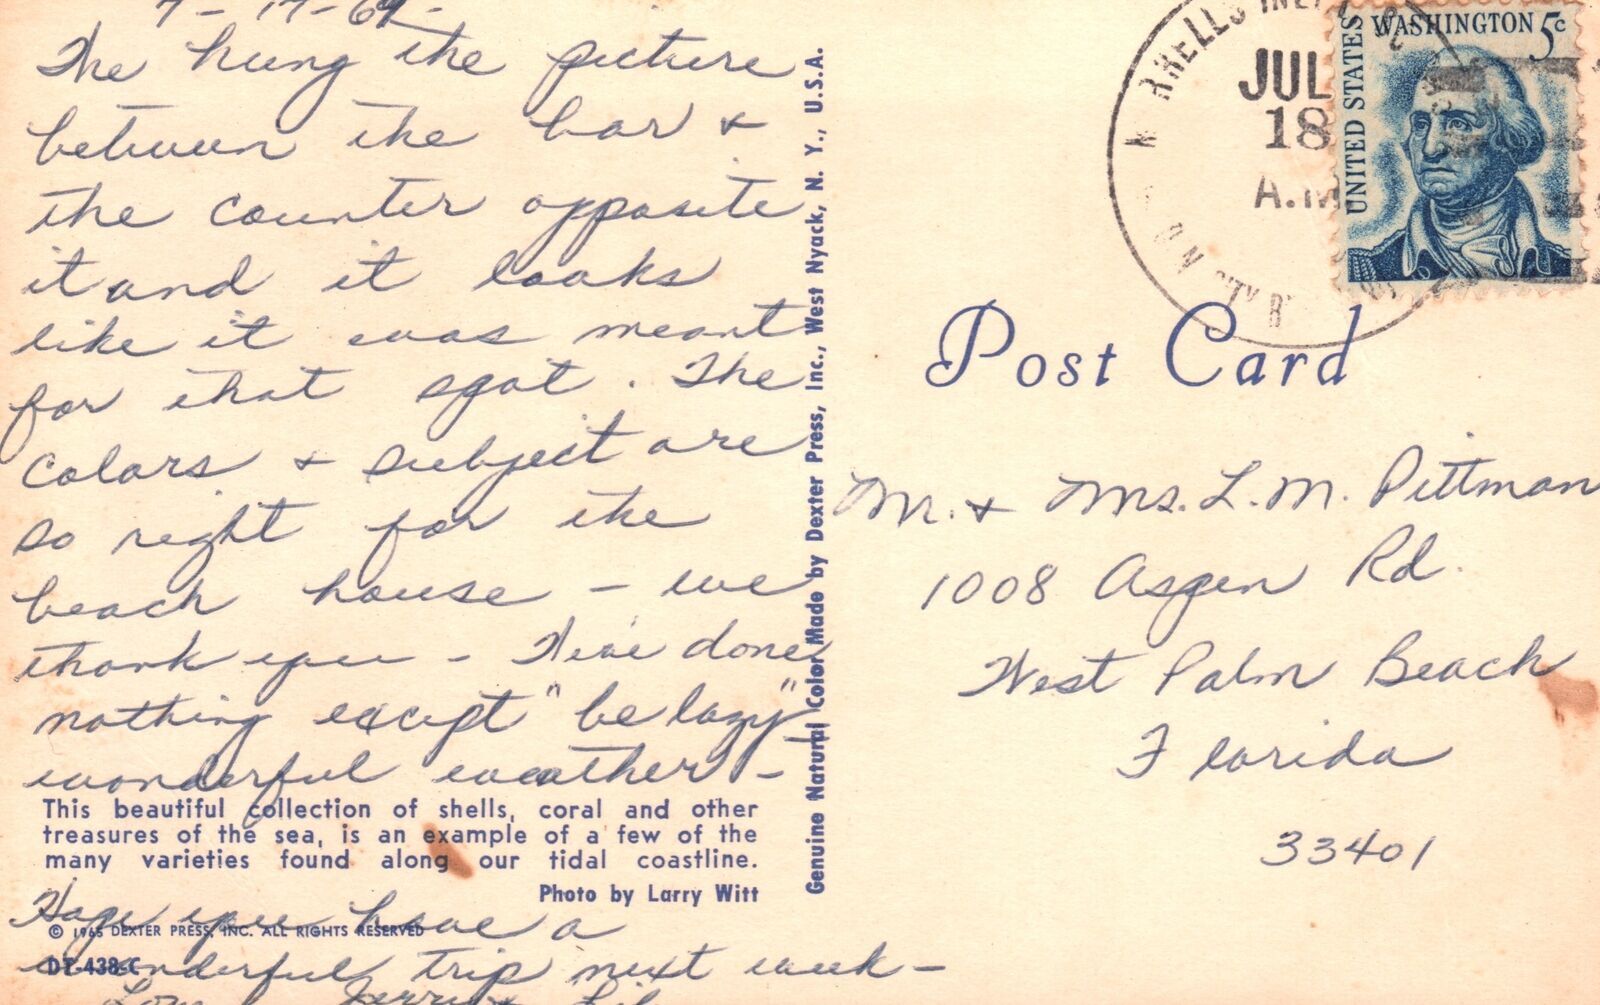 7-17-69-
The hung the picture
between the bar &
the counter opposite
it and it looks
like it was meant
for that spot. The
colors & subject are
so right for the
beach house - we
thank you - We've done
nothing except "be lazy"
wonderful weather -
This beautiful collection of shells, coral and other
treasures of the sea, is an example of a few of the
many varieties found along our tidal coastline.
Photo by Larry Witt
Hope you have a
© 1965 DEXTER PRESS, INC. ALL RIGHTS RESERVED
DT-438-C
wonderful trip next week -
Love
Genuine Natural Color Made by Dexter Press, Inc., West Nyack, N. Y., U.S.A.
JUL
18
A.M
UNITED STATES
WASHINGTON 5c
Post Card
Mr. & Mrs. L. M. Pittman
1008 Aspen Rd.
West Palm Beach
Florida
33401